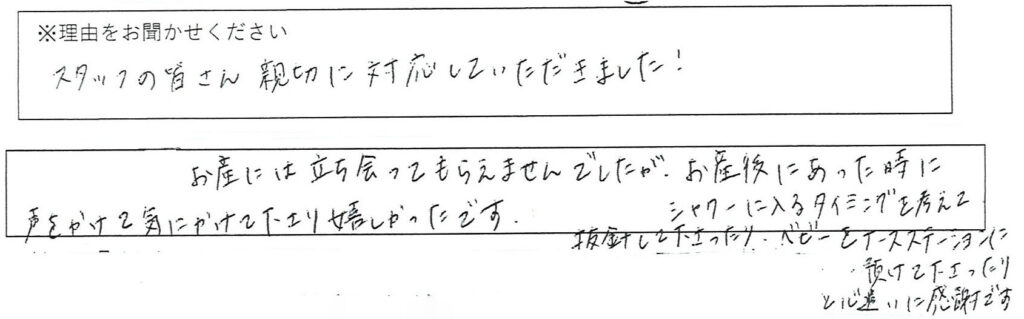 ※理由をお聞かせください
スタッフの皆さん 親切に対応していただきました!
お産には立ち会ってもらえませんでしたが、お産後にあった時に
声をかけて気にかけて下さり嬉しかったです.
シャワーに入るタイミングを考えて
抜針して下さったり、ベビーをナースステーションに
預けて下さったり
と心遣いに感謝です